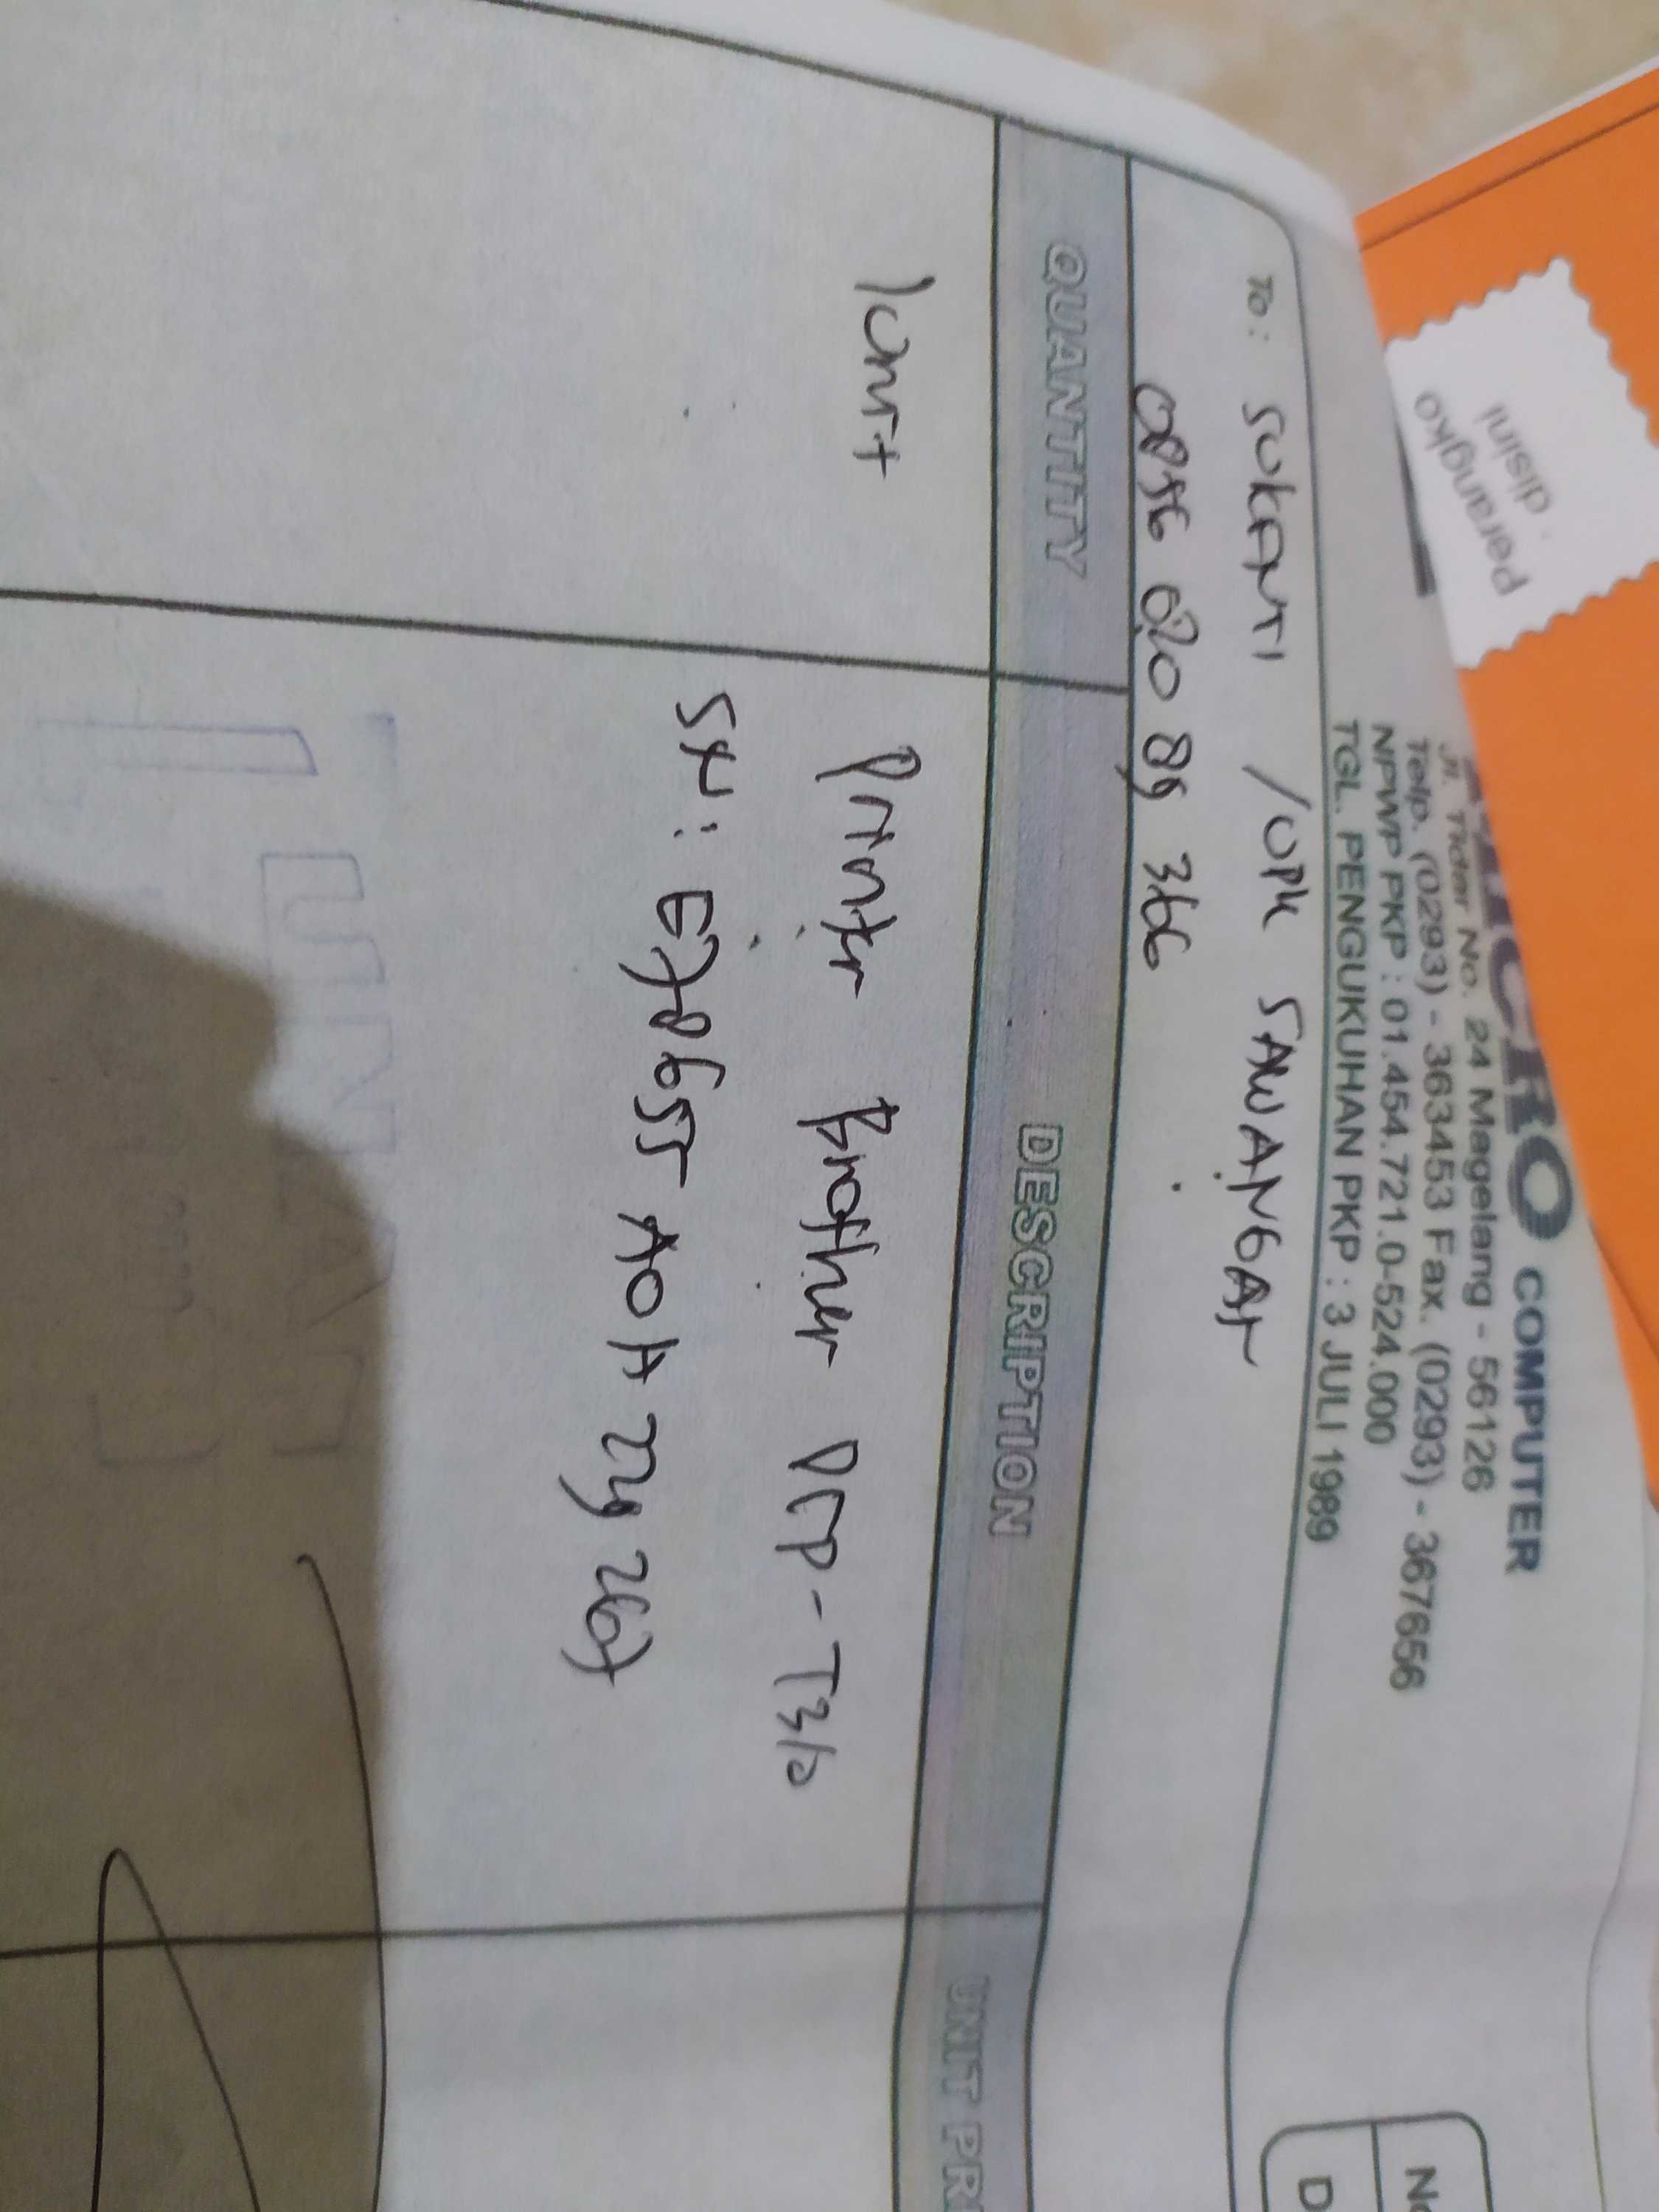 Perangko
disini
COMPUTER
Jl. Tidar No. 24 Magelang - 56126
Telp. (0293) - 363453 Fax. (0293) - 367656
NPWP PKP : 01.454.721.0-524.000
TGL. PENGUKUHAN PKP : 3 JULI 1989
To: SUKANTI / UPK SAWANGAN
0856 020 89 366
QUANTITY DESCRIPTION UNIT
1 Unit Printer Brother DCP - T310
SN: E78655 A0H 229267
LUNAS